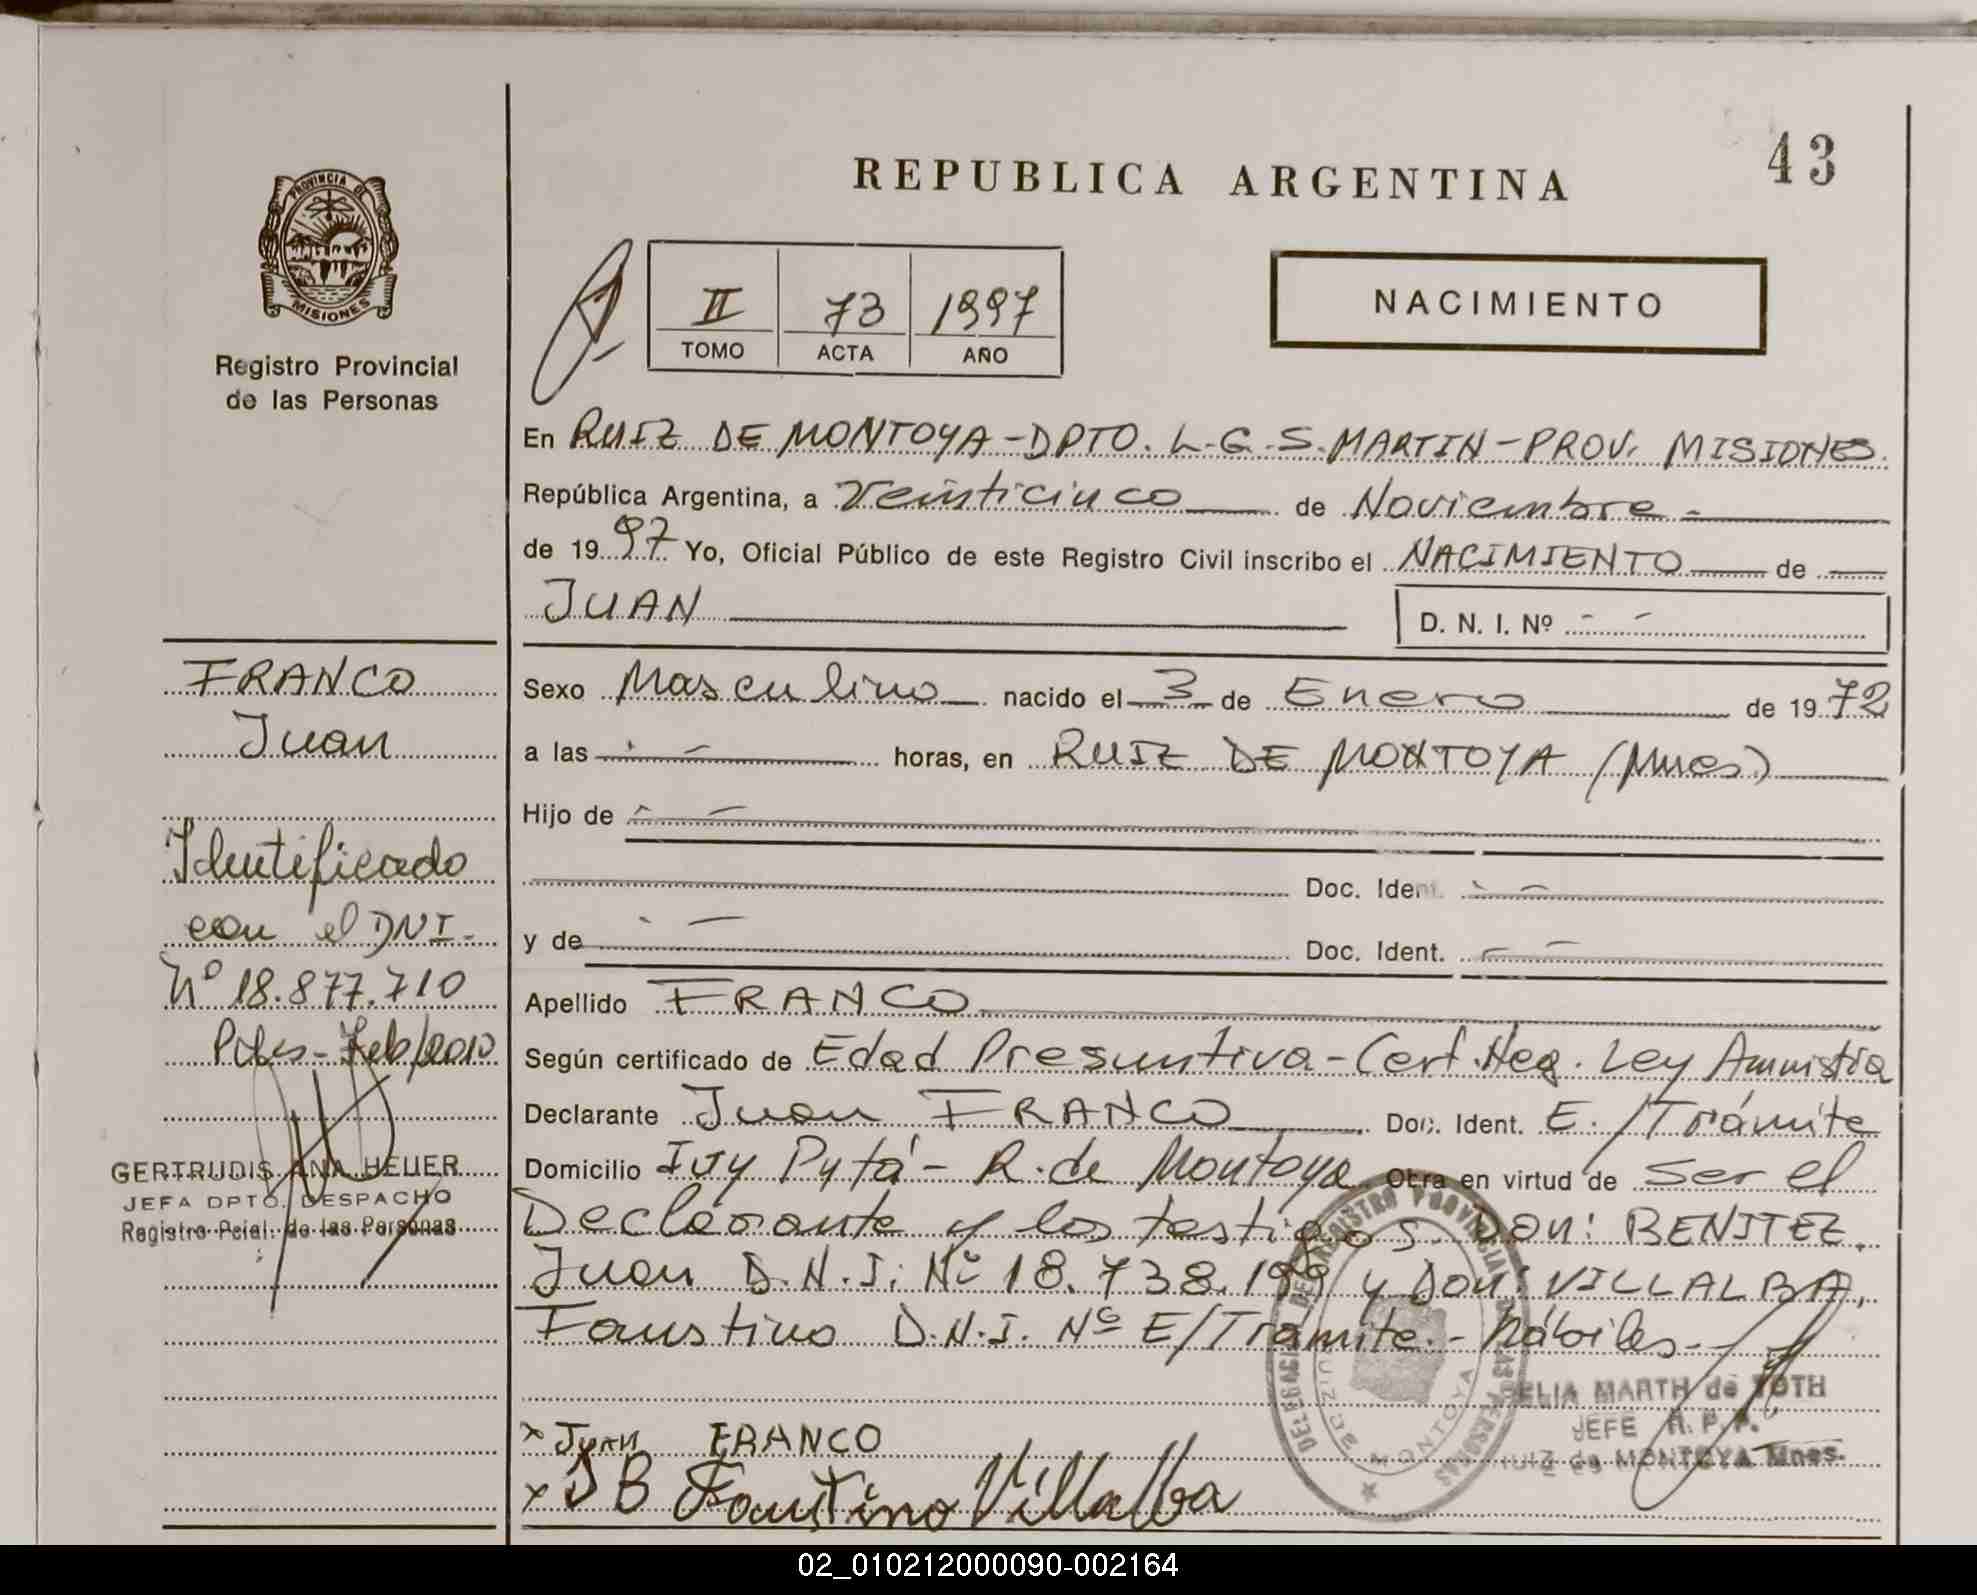 43
REPUBLICA ARGENTINA
PROVINCIA DE
MISIONES
Registro Provincial
de las Personas
II 73 1997
TOMO ACTA AÑO
NACIMIENTO
En RUIZ DE MONTOYA-DPTO. L.G.S. MARTIN-PROV. MISIONES
República Argentina, a Veinticinco de Noviembre
de 1997 Yo, Oficial Público de este Registro Civil inscribo el NACIMIENTO de
JUAN
D. N. I. Nº
FRANCO
Juan
Identificado
con el DNI
Nº 18.877.710
Pdas-Feb/2010
GERTRUDIS ANA HEUER
JEFA DPTO. DESPACHO
Registro Pcial. de las Personas
Sexo Masculino nacido el 3 de Enero de 1972
a las horas, en RUIZ DE MONTOYA (Mnes)
Hijo de
Doc. Ident.
y de Doc. Ident.
Apellido FRANCO
Según certificado de Edad Presuntiva-Cert. Neg. Ley Amnistía
Declarante Juan FRANCO Doc. Ident. E./Trámite
Domicilio Ivy Pytá - R. de Montoya Obra en virtud de ser el
Declarante y los testigos. Don: BENITEZ,
Juan D.N.I. Nº 18.738.199 y Don: VILLALBA,
Faustino D.N.I. Nº E/Trámite.- hábiles.-
DELEGACION DEL REGISTRO PROVINCIAL DE LAS PERSONAS
RUIZ DE MONTOYA
CELIA MARTH de TOTH
JEFE R. P. P.
RUIZ de MONTOYA Mnes.
x Juan FRANCO
x J B Faustino Villalba
02_010212000090-002164